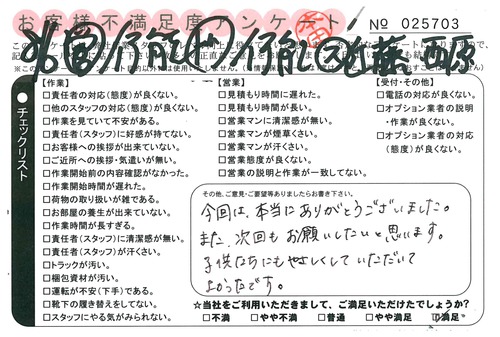 お客様不満足度アンケート
№ 025703
チェックリスト
【作業】
□責任者の対応(態度)が良くない。
□他のスタッフの対応(態度)が良くない。
□作業を見ていて不安がある。
□責任者(スタッフ)に好感が持てない。
□お客様への挨拶が出来ていない。
□ご近所への挨拶・気遣いが無い。
□作業開始前の内容確認がなかった。
□作業開始時間が遅れた。
□荷物の取り扱いが雑である。
□お部屋の養生が出来ていない。
□作業時間が長すぎる。
□責任者(スタッフ)に清潔感が無い。
□責任者(スタッフ)が汗くさい。
□トラックが汚い。
□梱包資材が汚い。
□運転が不安(下手)である。
□靴下の履き替えをしてない。
□スタッフにやる気がみられない。
【営業】
□見積もり時間に遅れた。
□見積もり時間が長い。
□営業マンに清潔感が無い。
□営業マンが煙草くさい。
□営業マンが汗くさい。
□営業態度が良くない。
□営業の説明と作業が一致してない。
【受付・その他】
□電話の対応が良くない。
□オプション業者の説明
・作業が良くない。
□オプション業者の対応
(態度)が良くない。
その他、ご意見・ご要望等ありましたらお書き下さい。
今回は、本当にありがとうございました。
また、次回もお願いしたいと思います。
子供たちにもやさしくしていただいて
よかったです。
☆当社をご利用いただきまして、ご満足いただけたでしょうか?
□不満 □やや不満 □普通 □やや満足 ☑満足